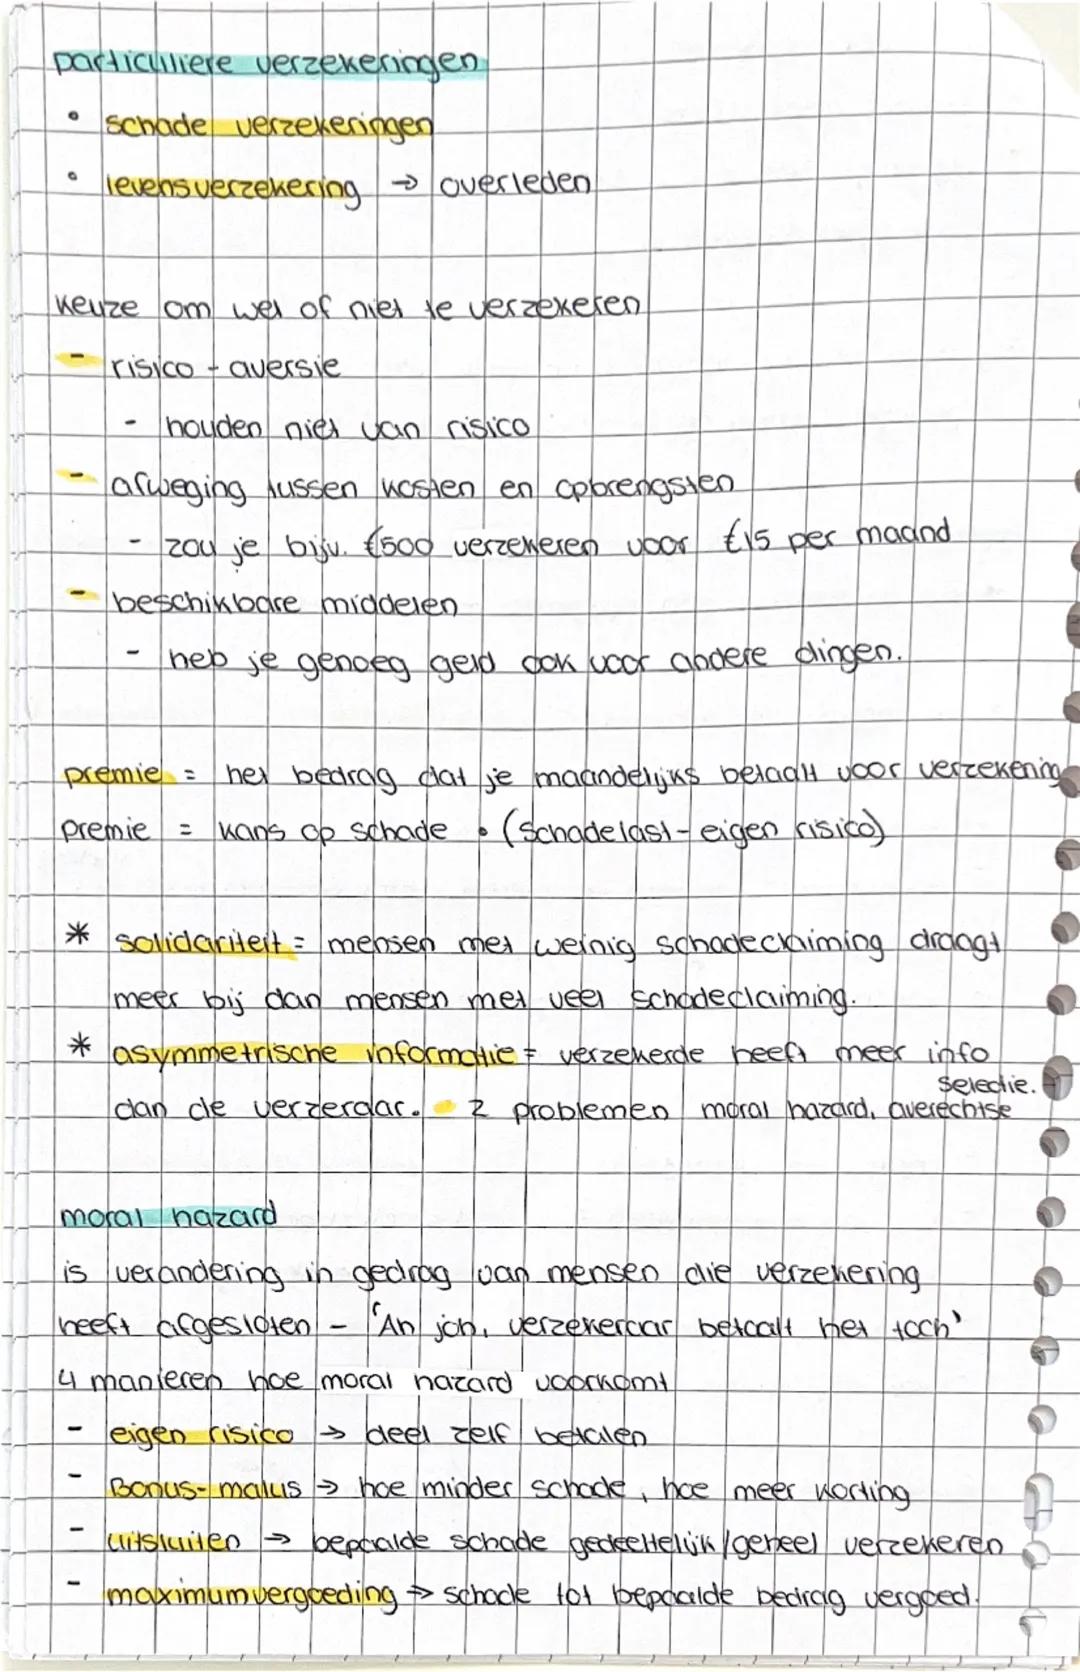 particuliere verzekeringen
• schade verzekeringen
• levensverzekering → overleden
keuze om wel of niet te verzekeren
- risico - aversie
- houden niet van risico
- afweging tussen kosten en opbrengsten
- zou je bijv. €500 verzekeren voor €15 per maand
- beschikbare middelen
- heb je genoeg geld ook voor andere dingen.
premie = het bedrag dat je maandelijks betaalt voor verzekering
premie = kans op schade • (schadelast - eigen risico)
* solidariteit = mensen met weinig schadeclaiming draagt
meer bij dan mensen met veel schadeclaiming.
* asymmetrische informatie = verzekerde heeft meer info
dan de verzerdaar. - 2 problemen moral hazard, averechtse
selectie.
moral hazard
is verandering in gedrag van mensen die verzekering
heeft afgesloten - 'Ah joh, verzekeraar betaalt het toch'
4 manieren hoe moral hazard voorkomt
- eigen risico → deel zelf betalen
- Bonus-malus → hoe minder schade, hoe meer korting
- uitsluiten → bepaalde schade gedeeltelijk/geheel verzekeren
- maximumvergoeding → schade tot bepaalde bedrag vergoed.